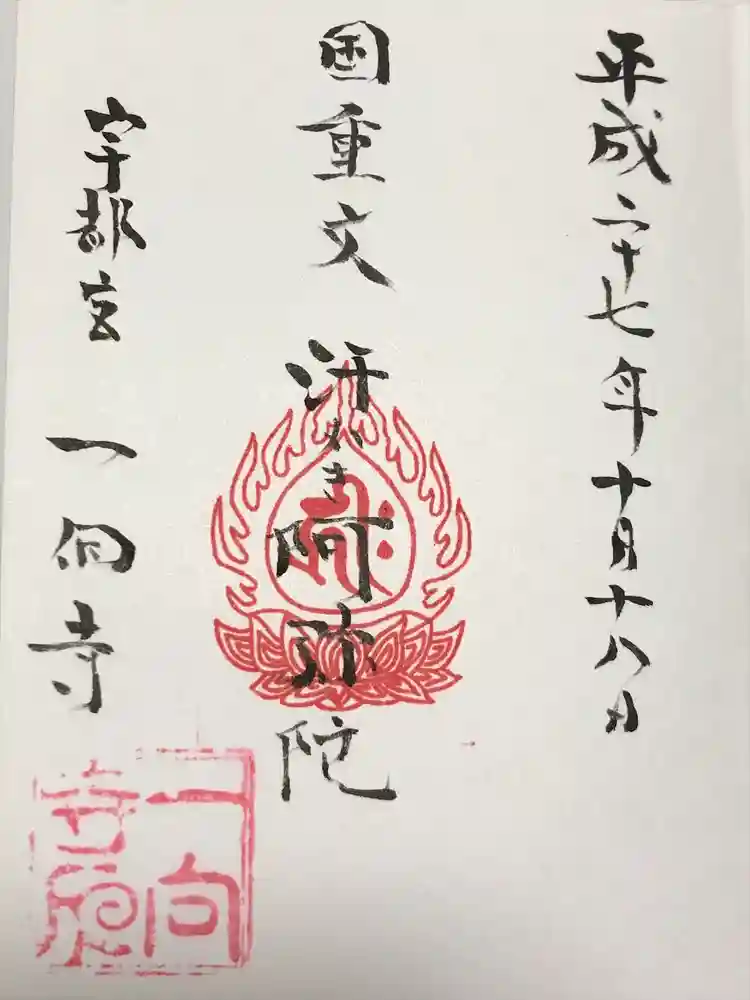 平成二十七年十月十八日
国重文 汗かき阿弥陀
宇都宮 一向寺
一向寺印